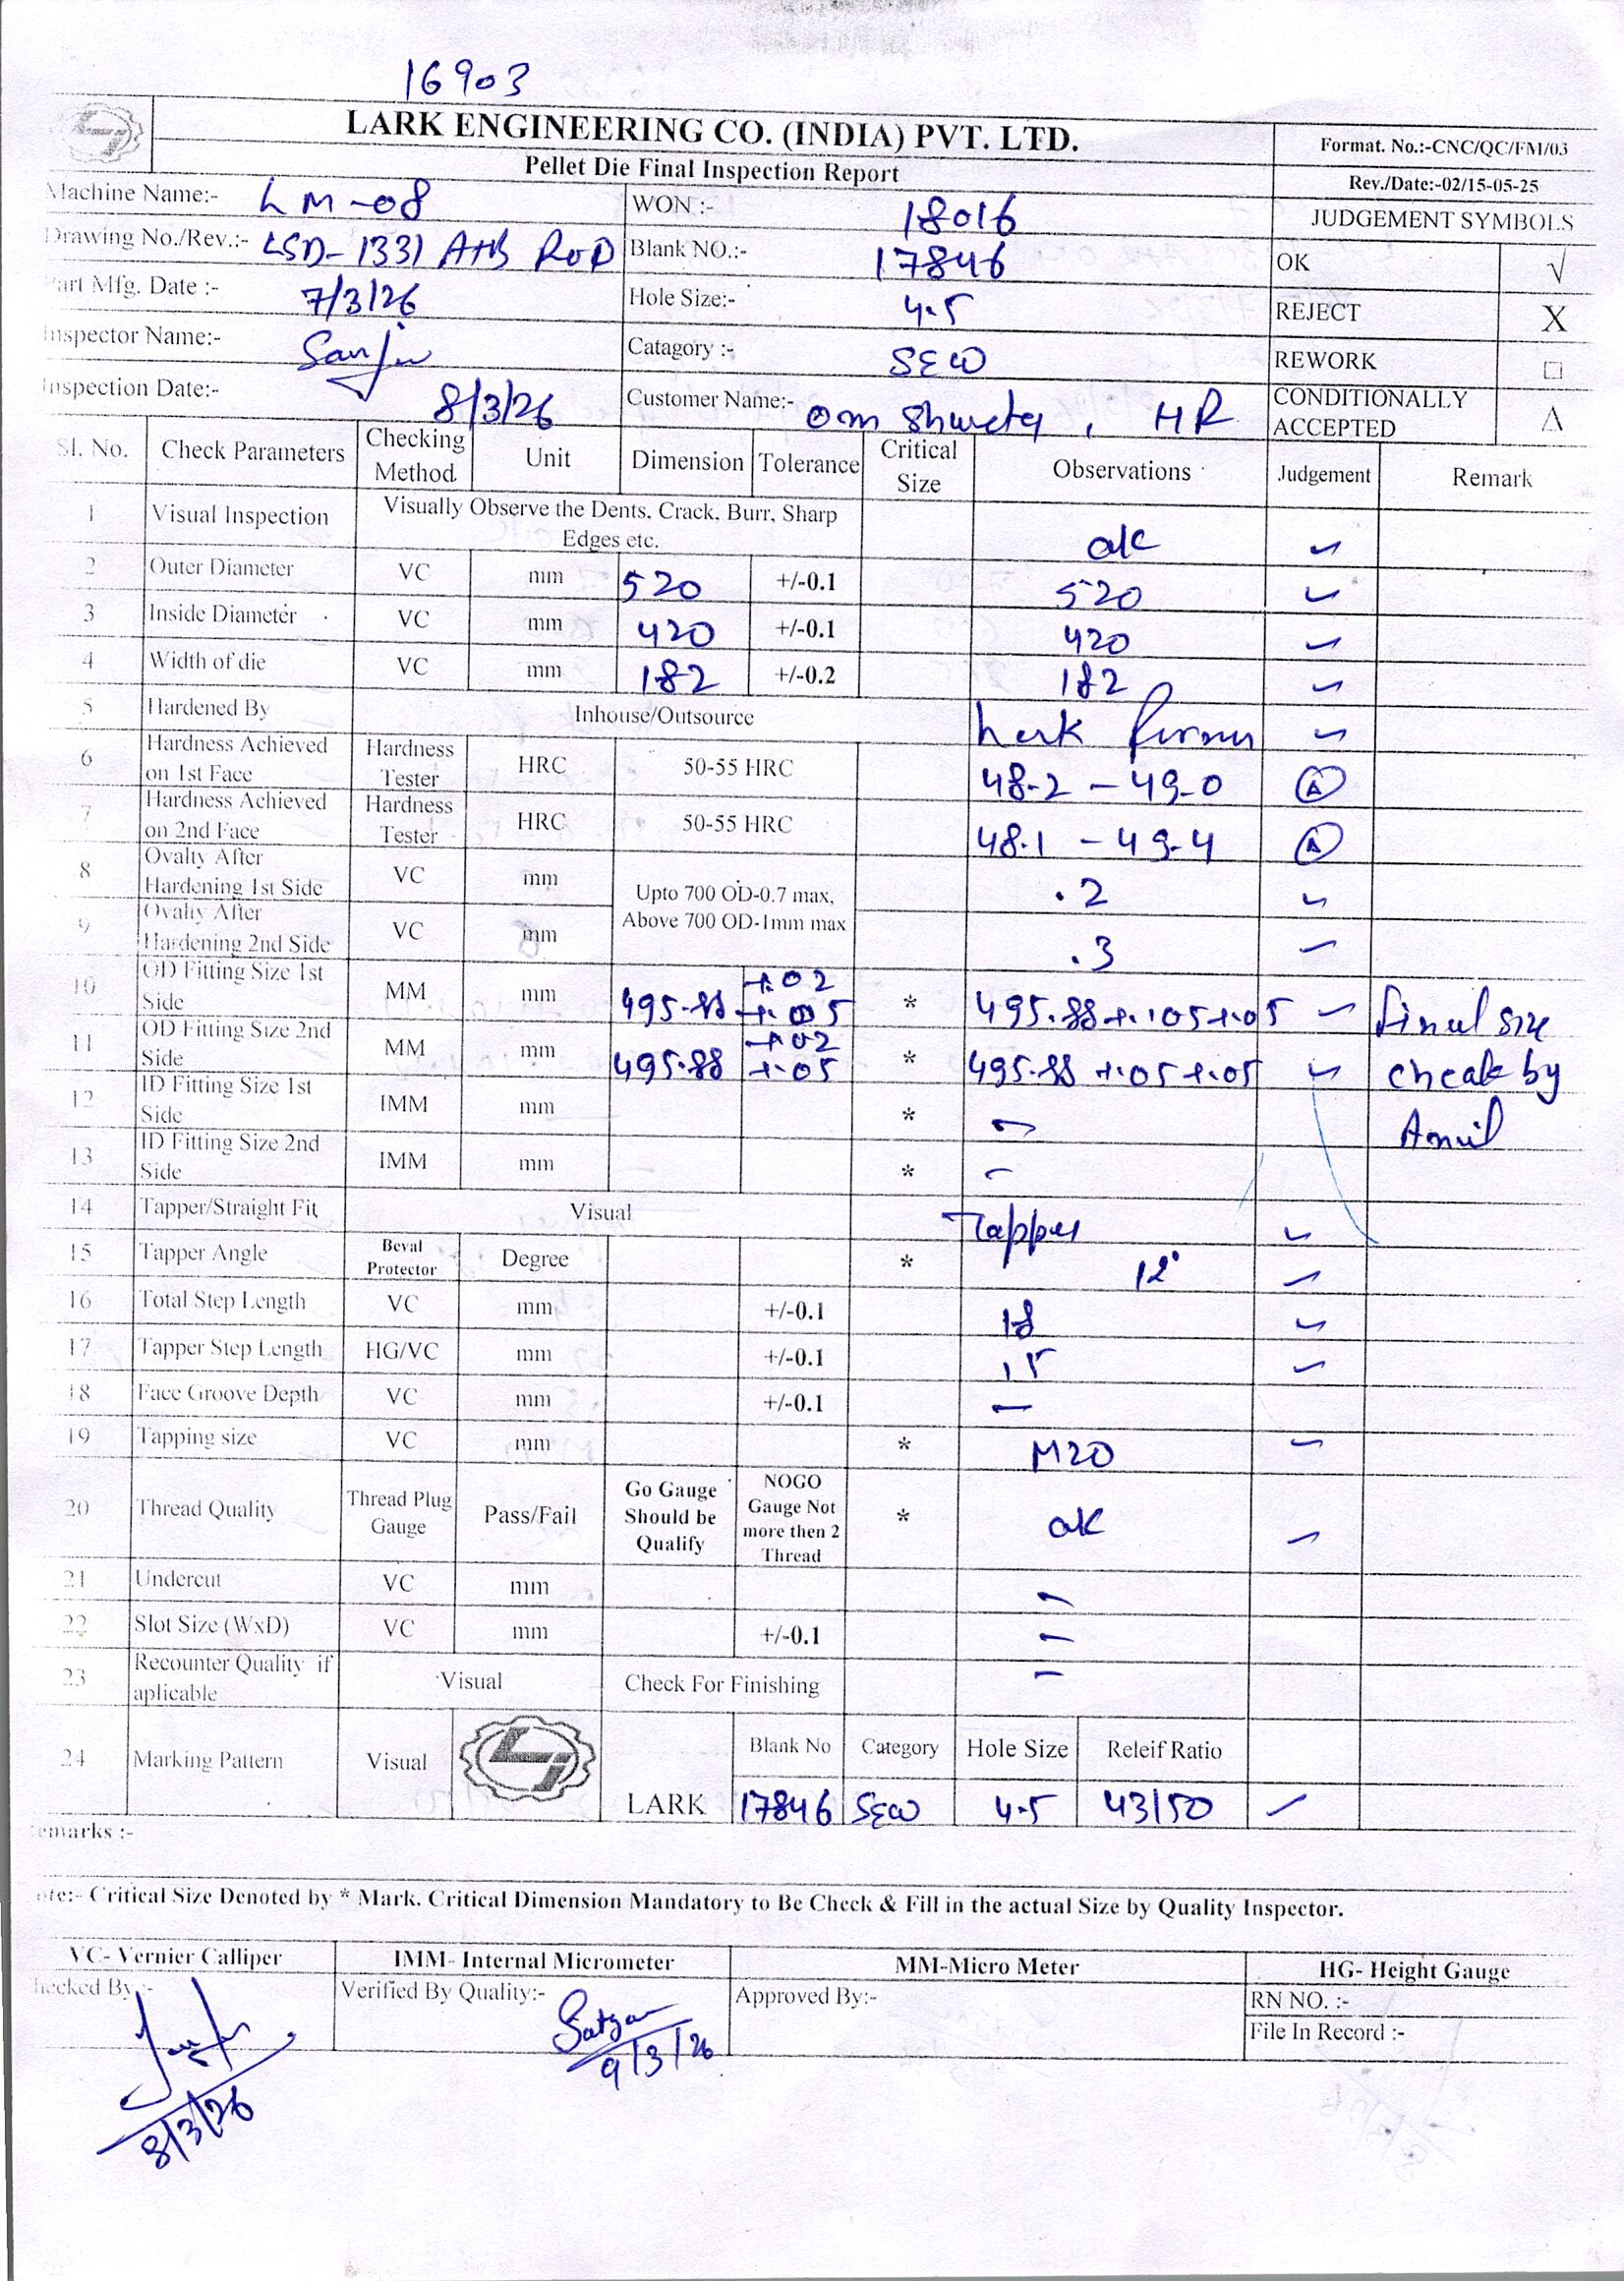 16903
LARK ENGINEERING CO. (INDIA) PVT. LTD.
Pellet Die Final Inspection Report
Format. No.:-CNC/QC/FM/03
Rev./Date:-02/15-05-25
JUDGEMENT SYMBOLS
Machine Name:- LM-08 WON :- 18016
Drawing No./Rev.:- LSD-1331 A+B R0D Blank NO.:- 17846 OK √
Part Mfg. Date :- 7/3/26 Hole Size:- 4.5 REJECT X
Inspector Name:- Sanju Catagory :- SEW REWORK □
Inspection Date:- 8/3/26 Customer Name:- Om Shweta, HR CONDITIONALLY ACCEPTED Δ
Sl. No. Check Parameters Checking Method. Unit Dimension Tolerance Critical Size Observations Judgement Remark
1 Visual Inspection Visually Observe the Dents, Crack, Burr, Sharp Edges etc. ok ✓
2 Outer Diameter VC mm 520 +/-0.1 520 ✓
3 Inside Diameter VC mm 420 +/-0.1 420 ✓
4 Width of die VC mm 182 +/-0.2 182 ✓
5 Hardened By Inhouse/Outsource ✓
6 Hardness Achieved on 1st Face Hardness Tester HRC 50-55 HRC 48.2 - 49.0
7 Hardness Achieved on 2nd Face Hardness Tester HRC 50-55 HRC 48.1 - 49.4
8 Ovalty After Hardening 1st Side VC mm Upto 700 OD-0.7 max, Above 700 OD-1mm max .2 ✓
9 Ovalty After Hardening 2nd Side VC mm .3 ✓
10 OD Fitting Size 1st Side MM mm 495.88 +.02 +.05 * 495.88 +.05 +.05 ✓ final size
11 OD Fitting Size 2nd Side MM mm 495.88 +.02 +.05 * 495.88 +.05 +.05 ✓ cheak by
12 ID Fitting Size 1st Side IMM mm * - Amil
13 ID Fitting Size 2nd Side IMM mm * -
14 Tapper/Straight Fit Visual Tapper ✓
15 Tapper Angle Beval Protector Degree * 12° ✓
16 Total Step Length VC mm +/-0.1 18 ✓
17 Tapper Step Length HG/VC mm +/-0.1 15 ✓
18 Face Groove Depth VC mm +/-0.1 -
19 Tapping size VC mm * M20 ✓
20 Thread Quality Thread Plug Gauge Pass/Fail Go Gauge Should be Qualify NOGO Gauge Not more then 2 Thread * ok ✓
21 Undercut VC mm -
22 Slot Size (WxD) VC mm +/-0.1 -
23 Recounter Quality if aplicable Visual Check For Finishing -
24 Marking Pattern Visual LARK Blank No Category Hole Size Releif Ratio
17846 SEW 4.5 43/50 ✓
emarks :-
ote:- Critical Size Denoted by * Mark. Critical Dimension Mandatory to Be Check & Fill in the actual Size by Quality Inspector.
VC- Vernier Calliper IMM- Internal Micrometer MM-Micro Meter HG- Height Gauge
hecked By:- Verified By Quality:- Approved By:- RN NO. :-
File In Record :-
8/3/26
9/3/26